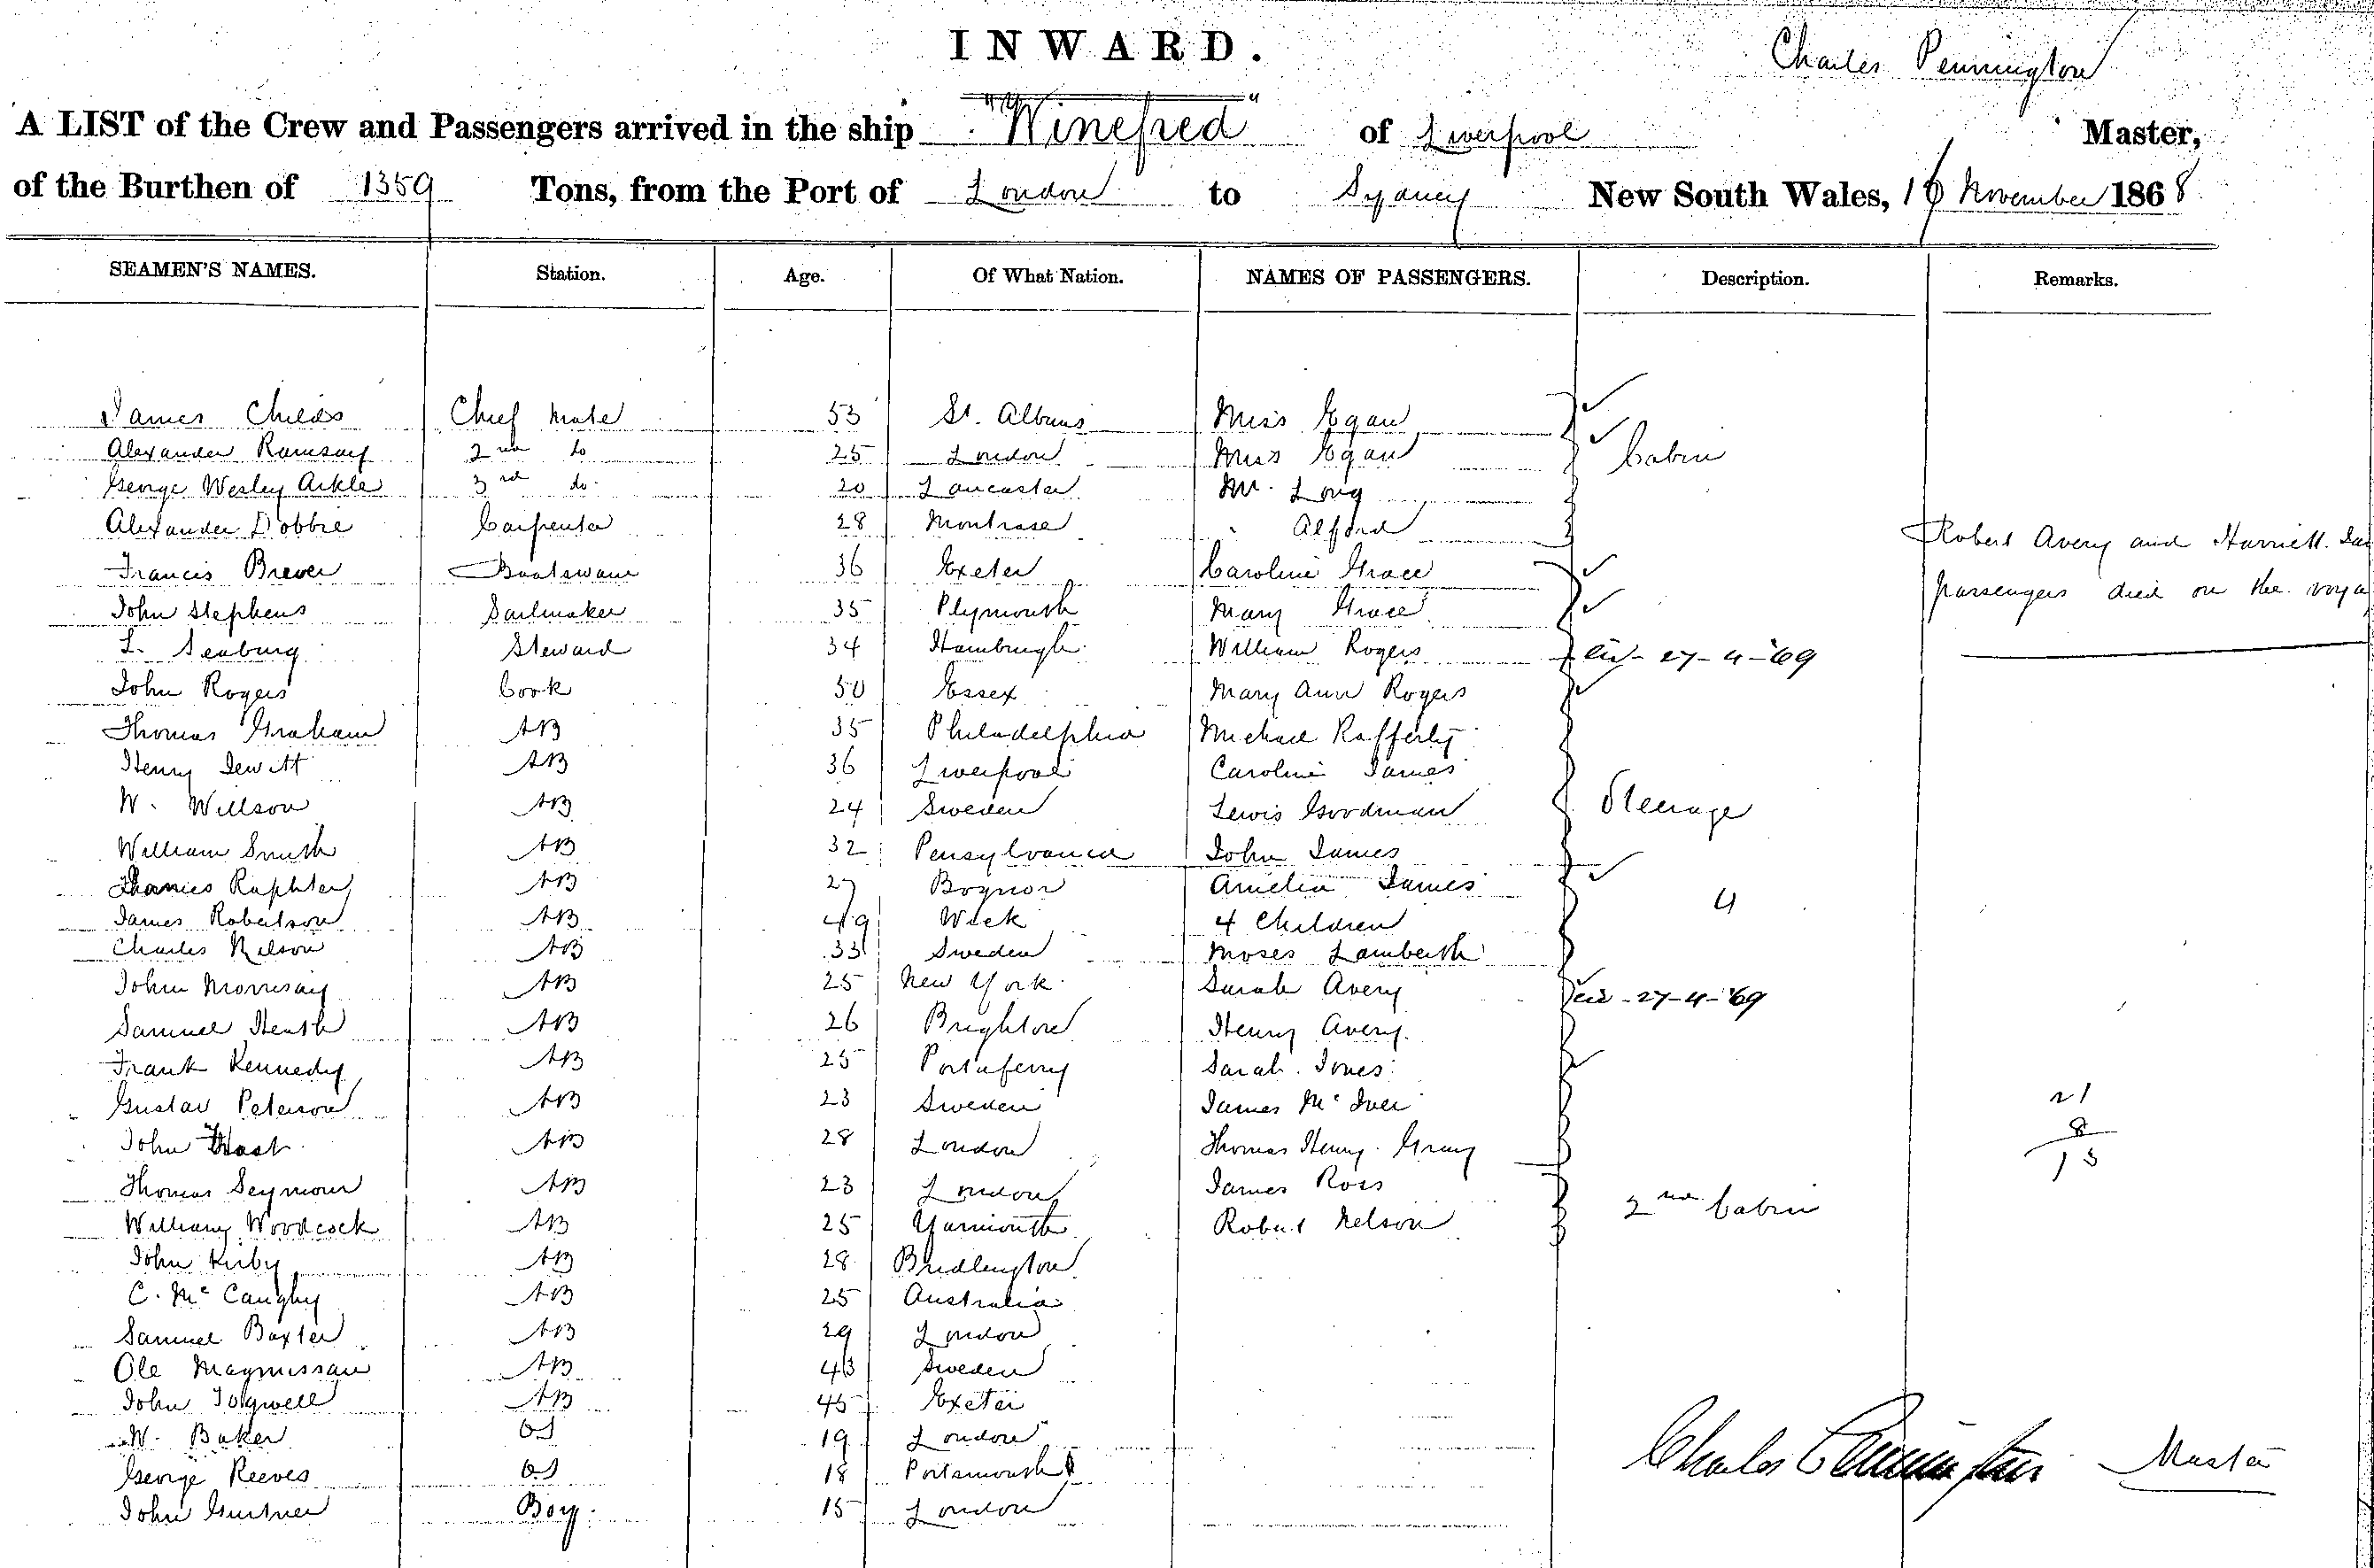 INWARD.
Charles Pennington
A LIST of the Crew and Passengers arrived in the ship "Winefred" of Liverpool Master,
of the Burthen of 1359 Tons, from the Port of London to Sydney New South Wales, 16 November 1868
SEAMEN'S NAMES. Station. Age. Of What Nation. NAMES OF PASSENGERS. Description. Remarks.
James Childs Chief Mate 53 St. Albans Miss Egan
Alexander Ramsay 2nd do 25 London Miss Egan Cabin
George Wesley Arkle 3rd do. 20 Lancaster Mr. Long
Alexander Dobbie Carpenter 28 Montrose " Alford
Robert Avery and Harriett
Francis Brewer Boatswain 36 Exeter Caroline Grace
passengers died on the
John Stephens Sailmaker 35 Plymouth Mary Grace
L. Seaburg Steward 34 Hamburgh William Rogers 27-4-'69
John Rogers Cook 50 Essex Mary Ann Rogers
Thomas Graham AB 35 Philadelphia Michael Rafferty
Henry Dewitt AB 36 Liverpool Caroline James
W. Willson AB 24 Sweden Lewis Goodman Steerage
William Smith AB 32 Pensylvania John James
AB 27 Bognor Amelia James
James Robertson AB 49 Wick 4 Children 4
Charles Nelson AB 33 Sweden Moses Lamberth
John Morrisay AB 25 New York. Sarah Avery 27-4-'69
Samuel Heath AB 26 Brighton Henry Avery.
Frank Kennedy AB 25 Portaferry Sarah Jones
Gustav Peterson AB 23 Sweden James McIver 21
John AB 28 London Thomas Henry Gray 8
13
Thomas Seymour AB 23 London James Ross
William Woodcock AB 25 Yarmouth Robert Nelson 2nd Cabin
John Kirby AB 28 Bridlington
C. McCaughy AB 25 Australia
Samuel Baxter AB 29 London
Ole Magnussan AB 43 Sweden
John Togwell AB 45 Exeter
W. Baker OS 19 London
George Reeves OS 18 Portsmouth
Charles Pennington Master
John Gurtner Boy. 15 London